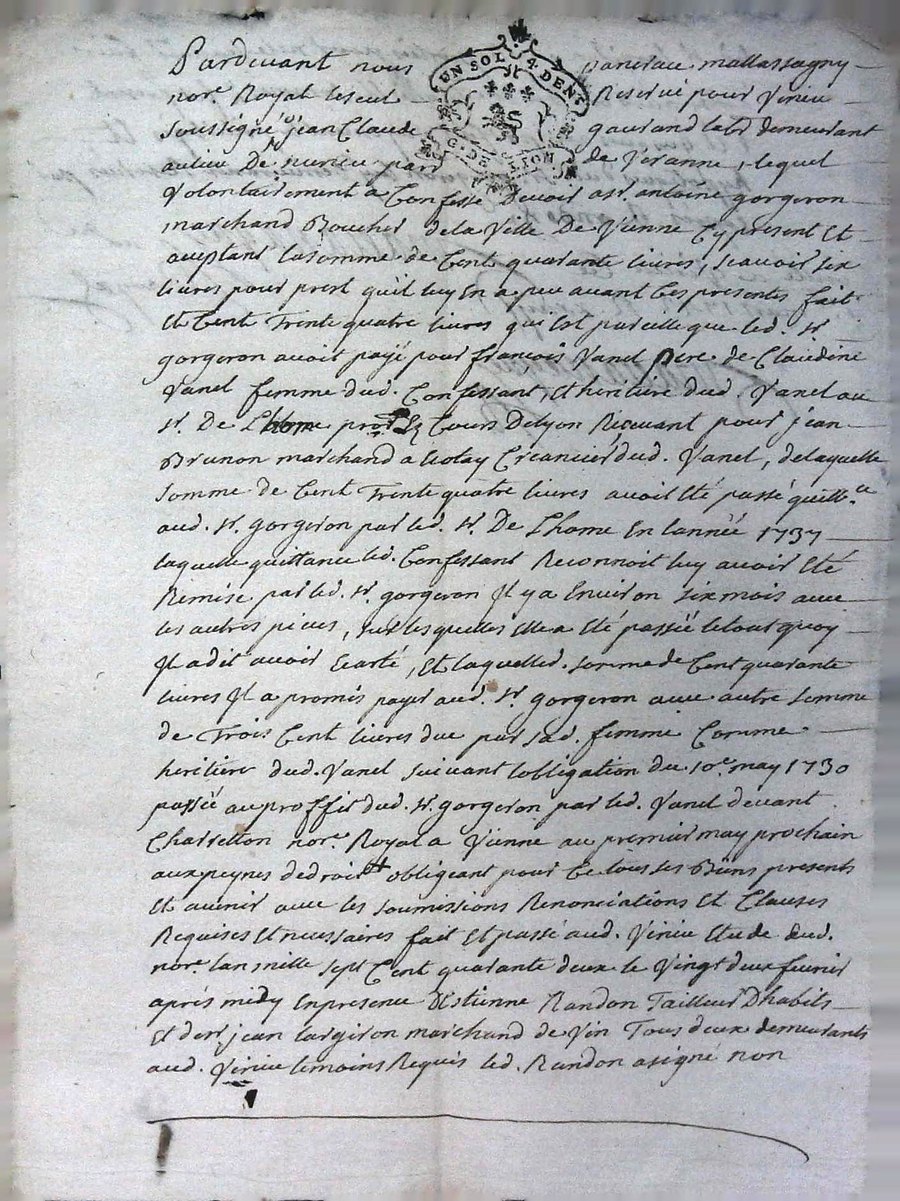 UN SOL 4 DEN.
G. DE LYON
Pardevant nous pancrace mallassagny
nore. Royal Reservé pour Virieu
soussigné jean Claude gaurand labr demeurant
au lieu De parr de Veranne, lequel
Volontairement a Confessé Devoir a sr. antoine gorgeron
marchand Boucher de la Ville De Vienne Cy present Et
aceptant la somme de Cent quarante livres, scavoir six
livres pour prest quil luy En a peu avant Ces presentes fait
Et Cent Trente quatre livres qui Est pareille que led. sr.
gorgeron avoit payé pour françois Vanel pere de Claudine
Vanel femme dud. Confessant, Et heritiere dud. Vanel au
sr. De Lhome procr Ez Cours De lyon Recevant pour jean
Brunon marchand a Creancier dud. Vanel, de laquelle
somme de Cent Trente quatre livres avoit Eté passé quittce
aud. sr. gorgeron par led. sr. De Lhome En lannéé 1737
laquelle quittance led. Confessant Reconnoit luy avoir Eté
Remise par led. sr. gorgeron Il y a Environ six mois avec
les autres pieces, sur lesquelles Elle a Eté passéé le tout quoy
Il a dit avoir Ecarté, Et laquelle d. somme de Cent quarante
livres Il a promis payer aud. sr. gorgeron avec autre somme
de Trois Cent livres due par sad. femme Comme
heritiere dud. Vanel suivant lobligation du 10e. may 1730
passéé au proffit dud. sr. gorgeron par led. Vanel devant
nore. Royal a Vienne au premier may prochain
aux peynes de droit obligeant pour Ce tous ses Biens presents
Et avenir avec les soumissions Renonciations Et Clauses
Requises Et necessaires fait Et passé aud. Virieu Etude dud.
nore. lan mille sept Cent quarante deux le Vingt deux fevrier
aprés midy En presence D'Estienne Randon Tailleur Dhabits
Et de sr. jean largiron marchand de Vin Tous deux demeurants
aud. Virieu temoins Requis led. Randon a signé non